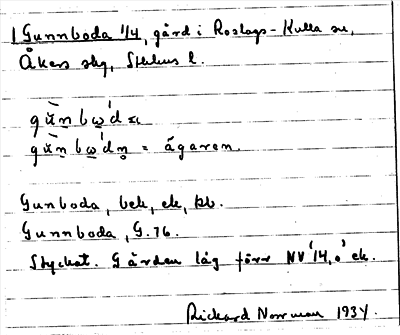 1 Gunnboda 1/4, gård i Roslags-Kulla sn,
Åkers skg, Sthlms l.
= ägaren.
Gunboda, bek, ek, kb.
Gunnboda, G. 76.
Styckat. Gården låg förr NV '14, ek.
Rickard Norrman 1934.